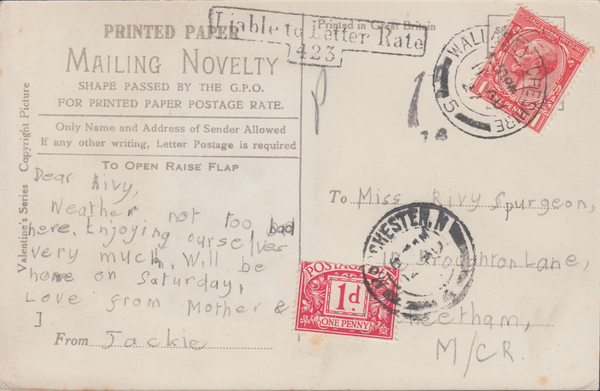 PRINTED PAPER
MAILING NOVELTY
SHAPE PASSED BY THE G.P.O.
FOR PRINTED PAPER POSTAGE RATE.
Only Name and Address of Sender Allowed
If any other writing, Letter Postage is required
TO OPEN RAISE FLAP
Valentine's Series Copyright Picture
Dear Rivy,
Weather not too bad
here. Enjoying ourselves
very much. Will be
home on Saturday,
Love from Mother &
From Jackie
Liable to Letter Rate
423
Printed in Great Britain
WALLA CHESHIRE
PENNY
To Miss Rivy Spurgeon,
Broughton Lane,
eetham,
M/CR.
CHESTER.N
POSTAGE DUE
1d.
ONE PENNY